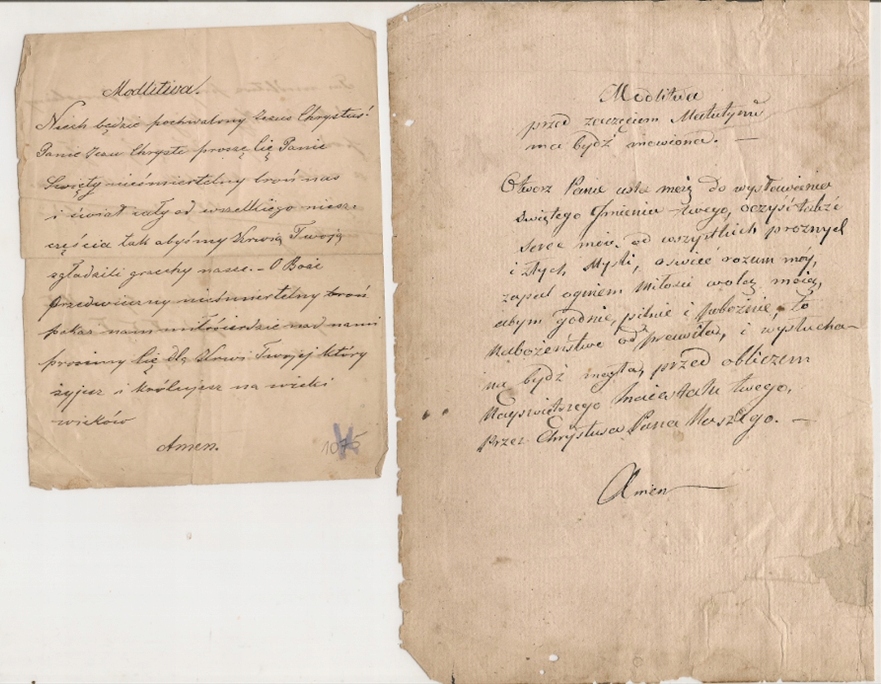 Modlitwa.
Niech będzie pochwalony Jezus Chrystus!
Panie Jezu Chryste proszę Cię Panie
Święty nieśmiertelny broń nas
i świat cały od wszelkiego niesz-
częścia tak abyśmy Krwią Twoją
zgładzili grzechy nasze. – O Boże
Przedwieczny nieśmiertelny broń
pokaż nam miłosierdzie nad nami
prosimy Cię dla Krwi Twojej który
żyjesz i królujesz na wieki
wieków
Amen.
1075
Modlitwa
przed zaczęciem Matutynu
ma bydź mówiona. —
Otworz Panie usta moię do wysławienia
świętego Imienia twego, oczyść także
serce moie od wszystkich proznych
i złych Mysli, oswieć rozum mój,
zapal ogniem miłosci wolą moię,
abym godnie, pilnie i nabożnie, to
Nabożeństwo od prawiła, i wysłucha-
na bydź mogła, przed obliczem
Nayswiętszego Maiestatu twego,
Przez Chrystusa Pana Naszego. —
Amen